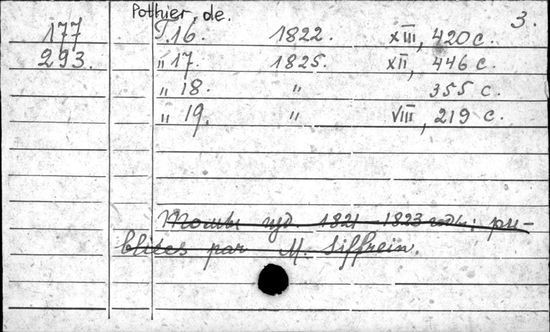 Pothier, de. 3.
177 T.16. 1822. XIII, 420 с.
293. „ 17. 1825. XII, 446 с.
„ 18. „ 355 с.
„ 19. „ VIII, 219 с.
изд. 1821-1823 pu-
blités par M. Siffrein.